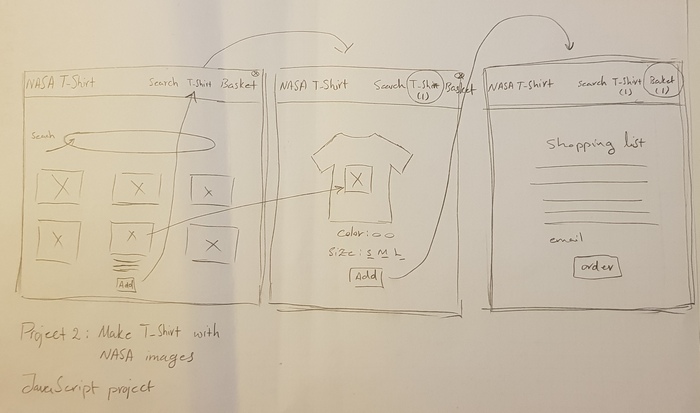 NASA T-Shirt Search T-Shirt Basket
Search
Add
NASA T-Shirt Search T-Shirt Basket
(1)
Color:
Size: S M L
Add
NASA T-Shirt Search T-Shirt Basket
(1) (1)
Shopping list
email
order
Project 2: Make T-Shirt with
NASA images
JavaScript project